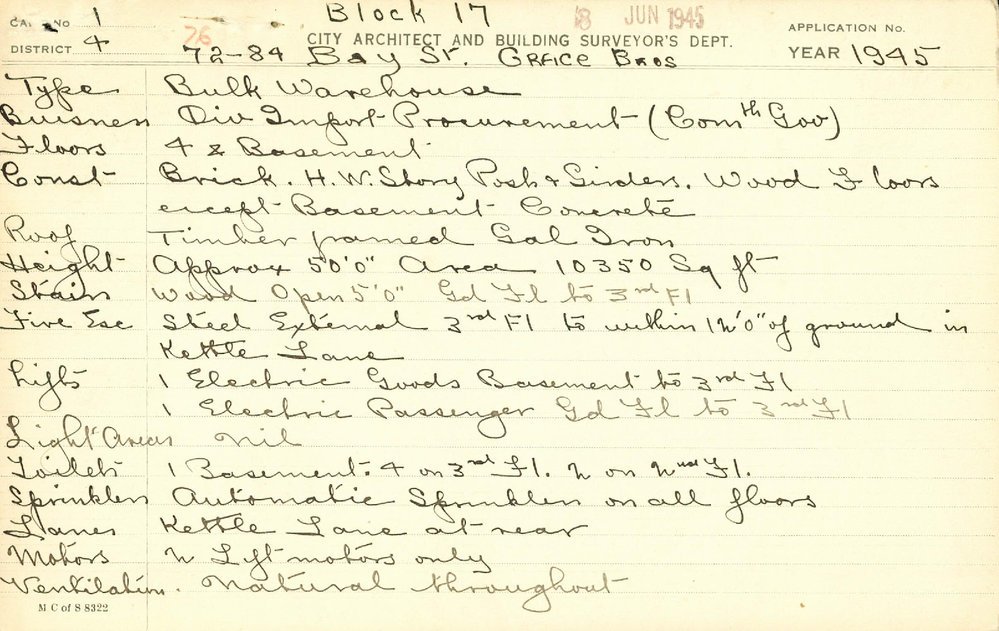 CARD No 1 Block 17 18 JUN 1945
DISTRICT 4 26 CITY ARCHITECT AND BUILDING SURVEYOR'S DEPT. APPLICATION No.
72-84 Bay St. Grace Bros YEAR 1945
Type Bulk Warehouse
Buisness Div Import Procurement (Comth Gov)
Floors 4 & Basement
Const Brick. H.W. Story Posh & Girders. Wood Floors
except Basement Concrete
Roof Timber framed Gal Iron
Height Approx 50'0" Area 10350 Sq ft
Stairs Wood Open 5'0" Gd Fl to 3rd Fl
Fire Esc Steel External 3rd Fl to within 12'0" of ground in
Kettle Lane
Lifts 1 Electric Goods Basement to 3rd Fl
1 Electric Passenger Gd Fl to 3rd Fl
Light Areas Nil
Toilets 1 Basement. 4 on 3rd Fl. 2 on 2nd Fl.
Sprinklers Automatic Sprinklers on all floors
Lanes Kettle Lane at rear
Motors 2 Lift motors only
Ventilation. Natural throughout
M C of S 8322